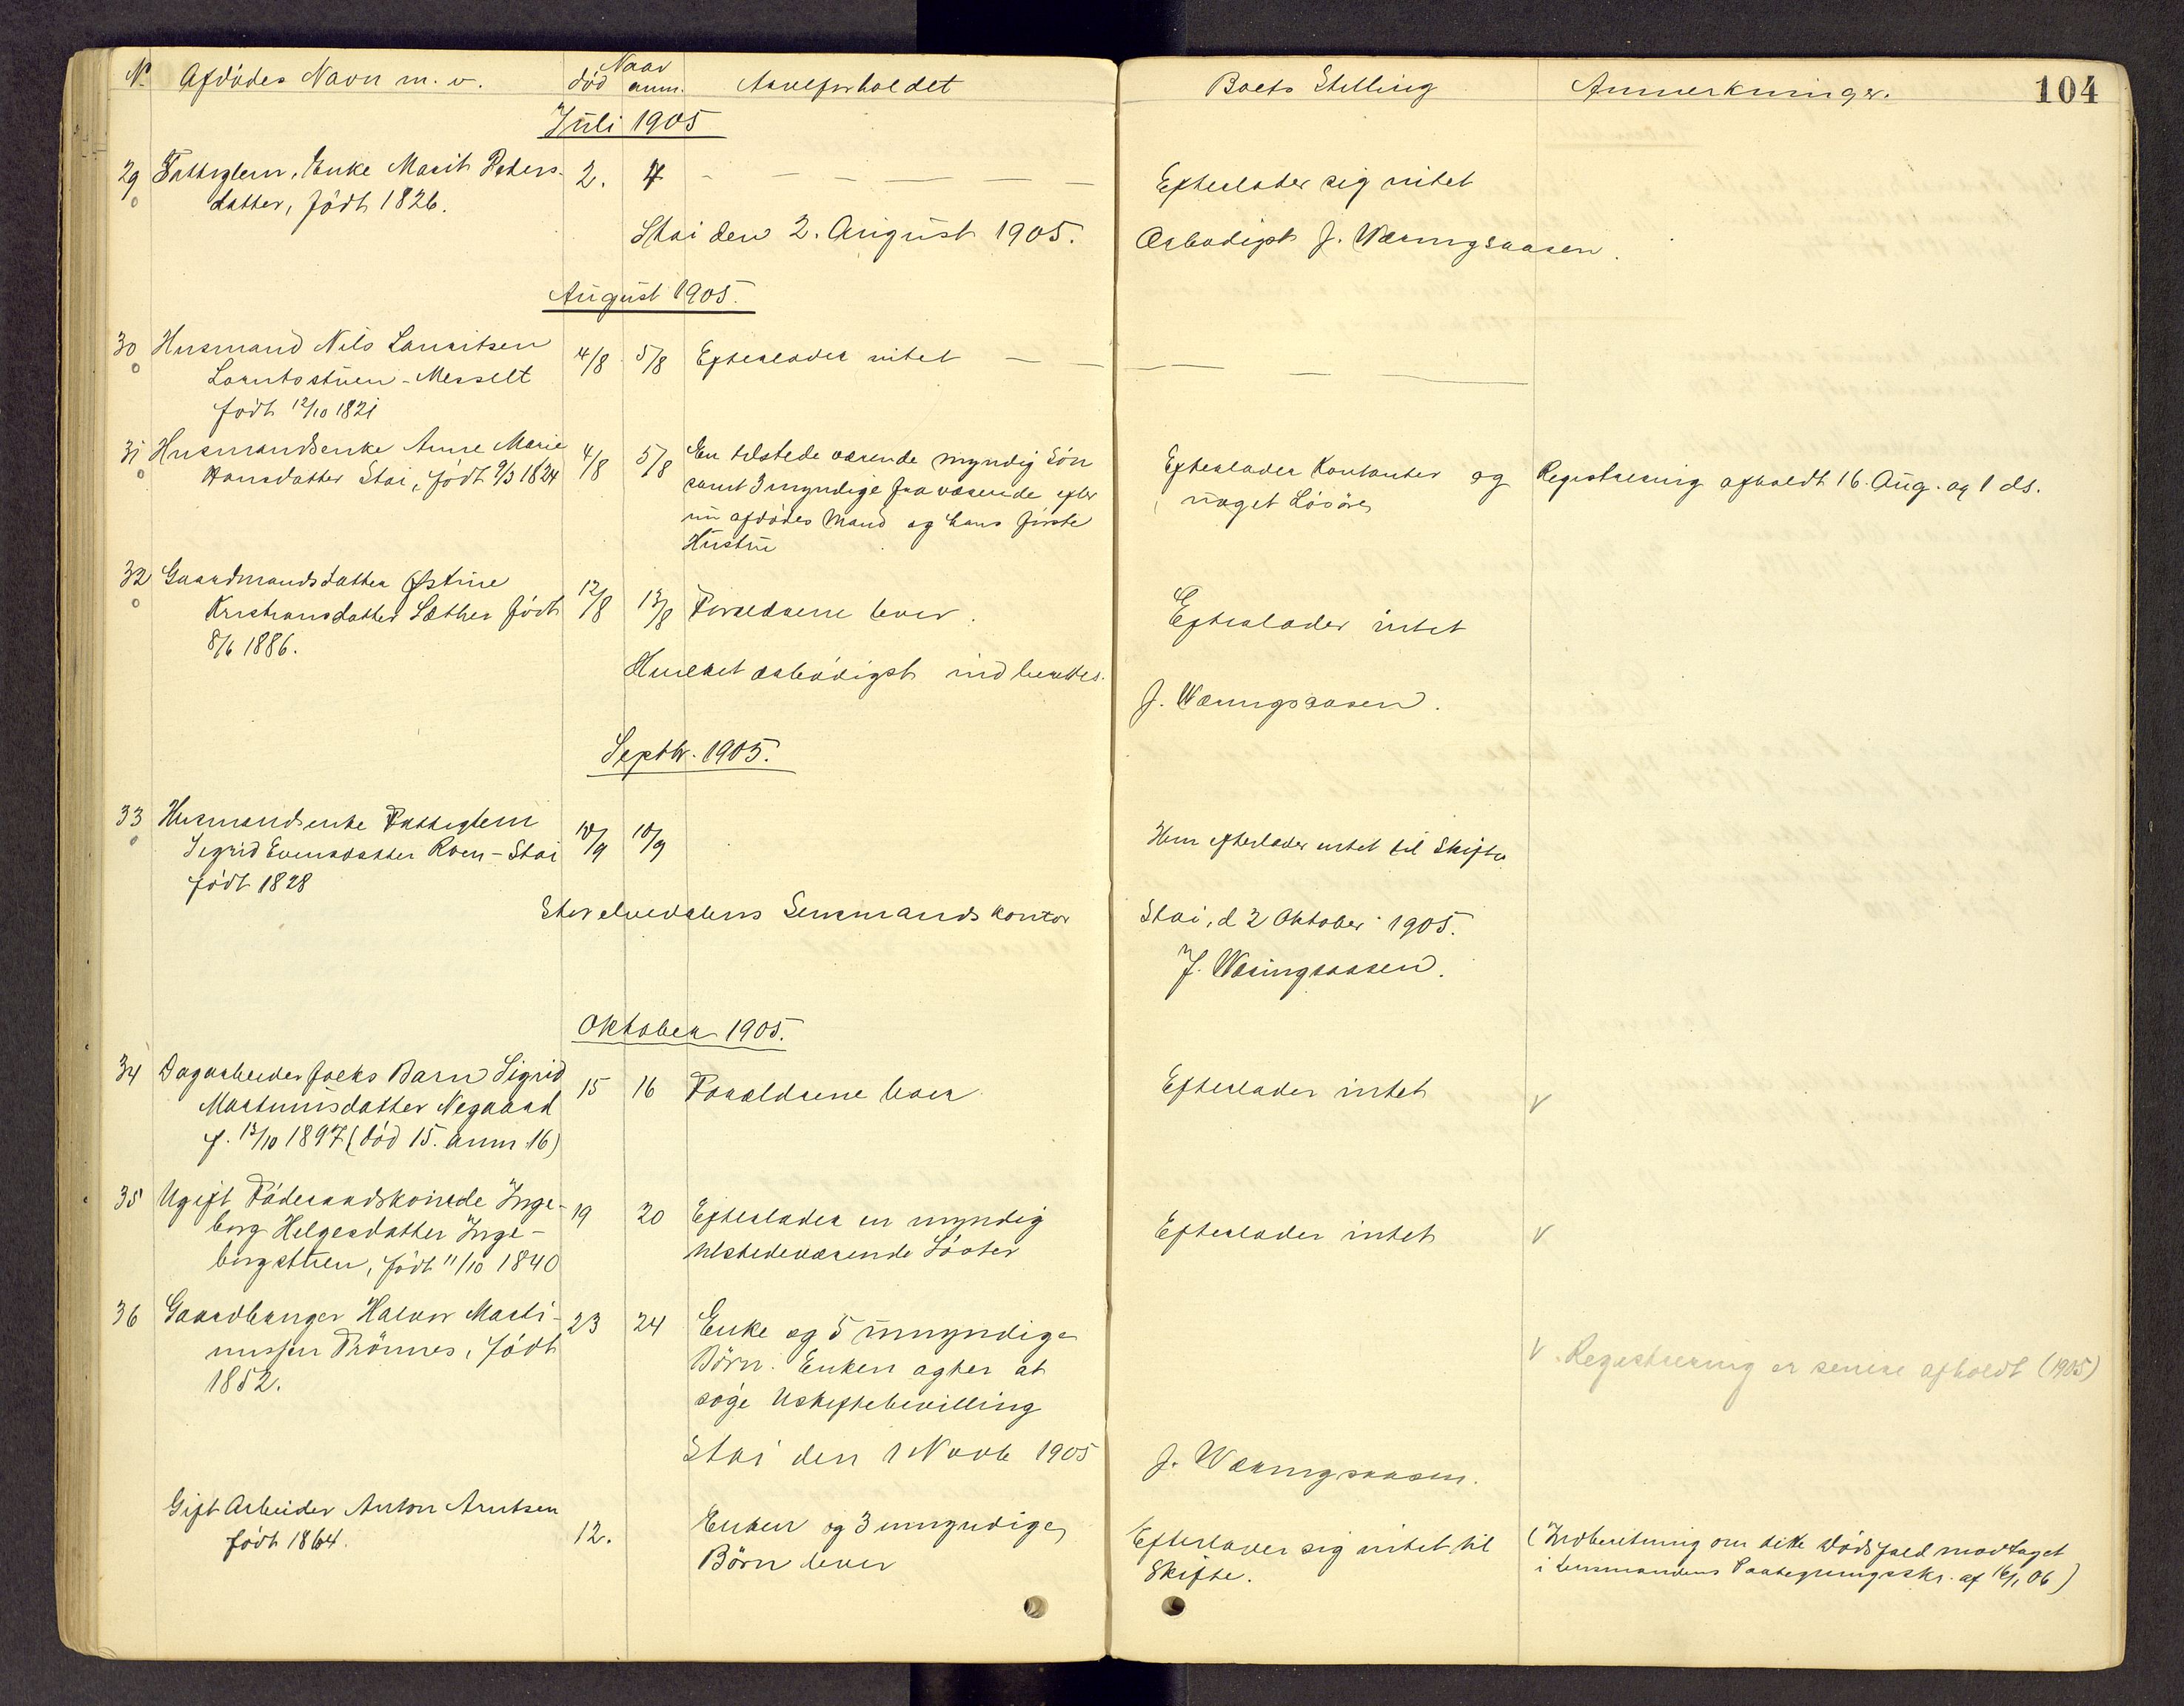 No Afdödes Navn m. v. Naar död anm. Arveforholdet Boets Stilling Anmerkninger. 104
Juli 1905
29 Fattiglem, Enke Marit Peders- 2. 4 - - - - - - Efterlader sig intet
datter, född 1826.
Stai den 2. August 1905. Ærbødigst J. Wæringsaasen.
August 1905.
30 Husmand Nils Lauritsen 4/8 5/8 Efterlader intet - - - -
Messelt
född 12/10 1821
31 Husmandsenke Anne Marie 4/8 5/8 En tilstedeværende myndig Sön Efterlader Kontanter og Registrering afholdt 16. Aug. og 1 ds.
Hansdatter Stai, född 9/3 1824 samt 3 myndige fraværende efter noget Lösöre
nu afdödes Mand og hans förste
Hustru
32 Gaardmandsdatter Østine 12/8 13/8 Forældrene lever. Efterlader intet
Kristiansdatter Sæther födt
8/6 1886.
Hvilket ærbödigst indberettes. J. Wæringsaasen.
Septbr. 1905.
33 Husmandsenke Fattiglem 10/9 10/9 Hun efterlader intet til Skifte
Sigrid Evensdatter Roen - Stai
födt 1828
Storelvedalens Lensmandskontor Stai, d 2 Oktober 1905.
J. Wæringsaasen.
Oktober 1905.
34 Dagarbeiderfolks Barn Sigrid 15 16 Forældrene lever Efterlader intet V
Martinusdatter Negaard
f. 13/10 1897 (död 15. anm. 16)
35 Ugift Föderaadskvinde Inge- 19 20 Efterlader en myndig Efterlader intet V
borg Helgesdatter Inge- tilstedeværende Söster
borgstuen, födt 11/10 1840
36 Gaardbruger Halvor Marti- 23 24 Enke og 5 umyndige V. Registrering er senere afholdt (1905)
nussen Trönnes, födt Börn. Enken agter at
1852. söge Uskiftebevilling
Stai den 1 Novb 1905 J. Wæringsaasen.
Gift Arbeider Anton Arntsen 12. Enken og 3 umyndige Efterlader sig intet til (Indberetning om dette Dödsfald modtaget
födt 1864. Börn lever Skifte. i Lensmandens Paategningsskr. af 16/1 06)